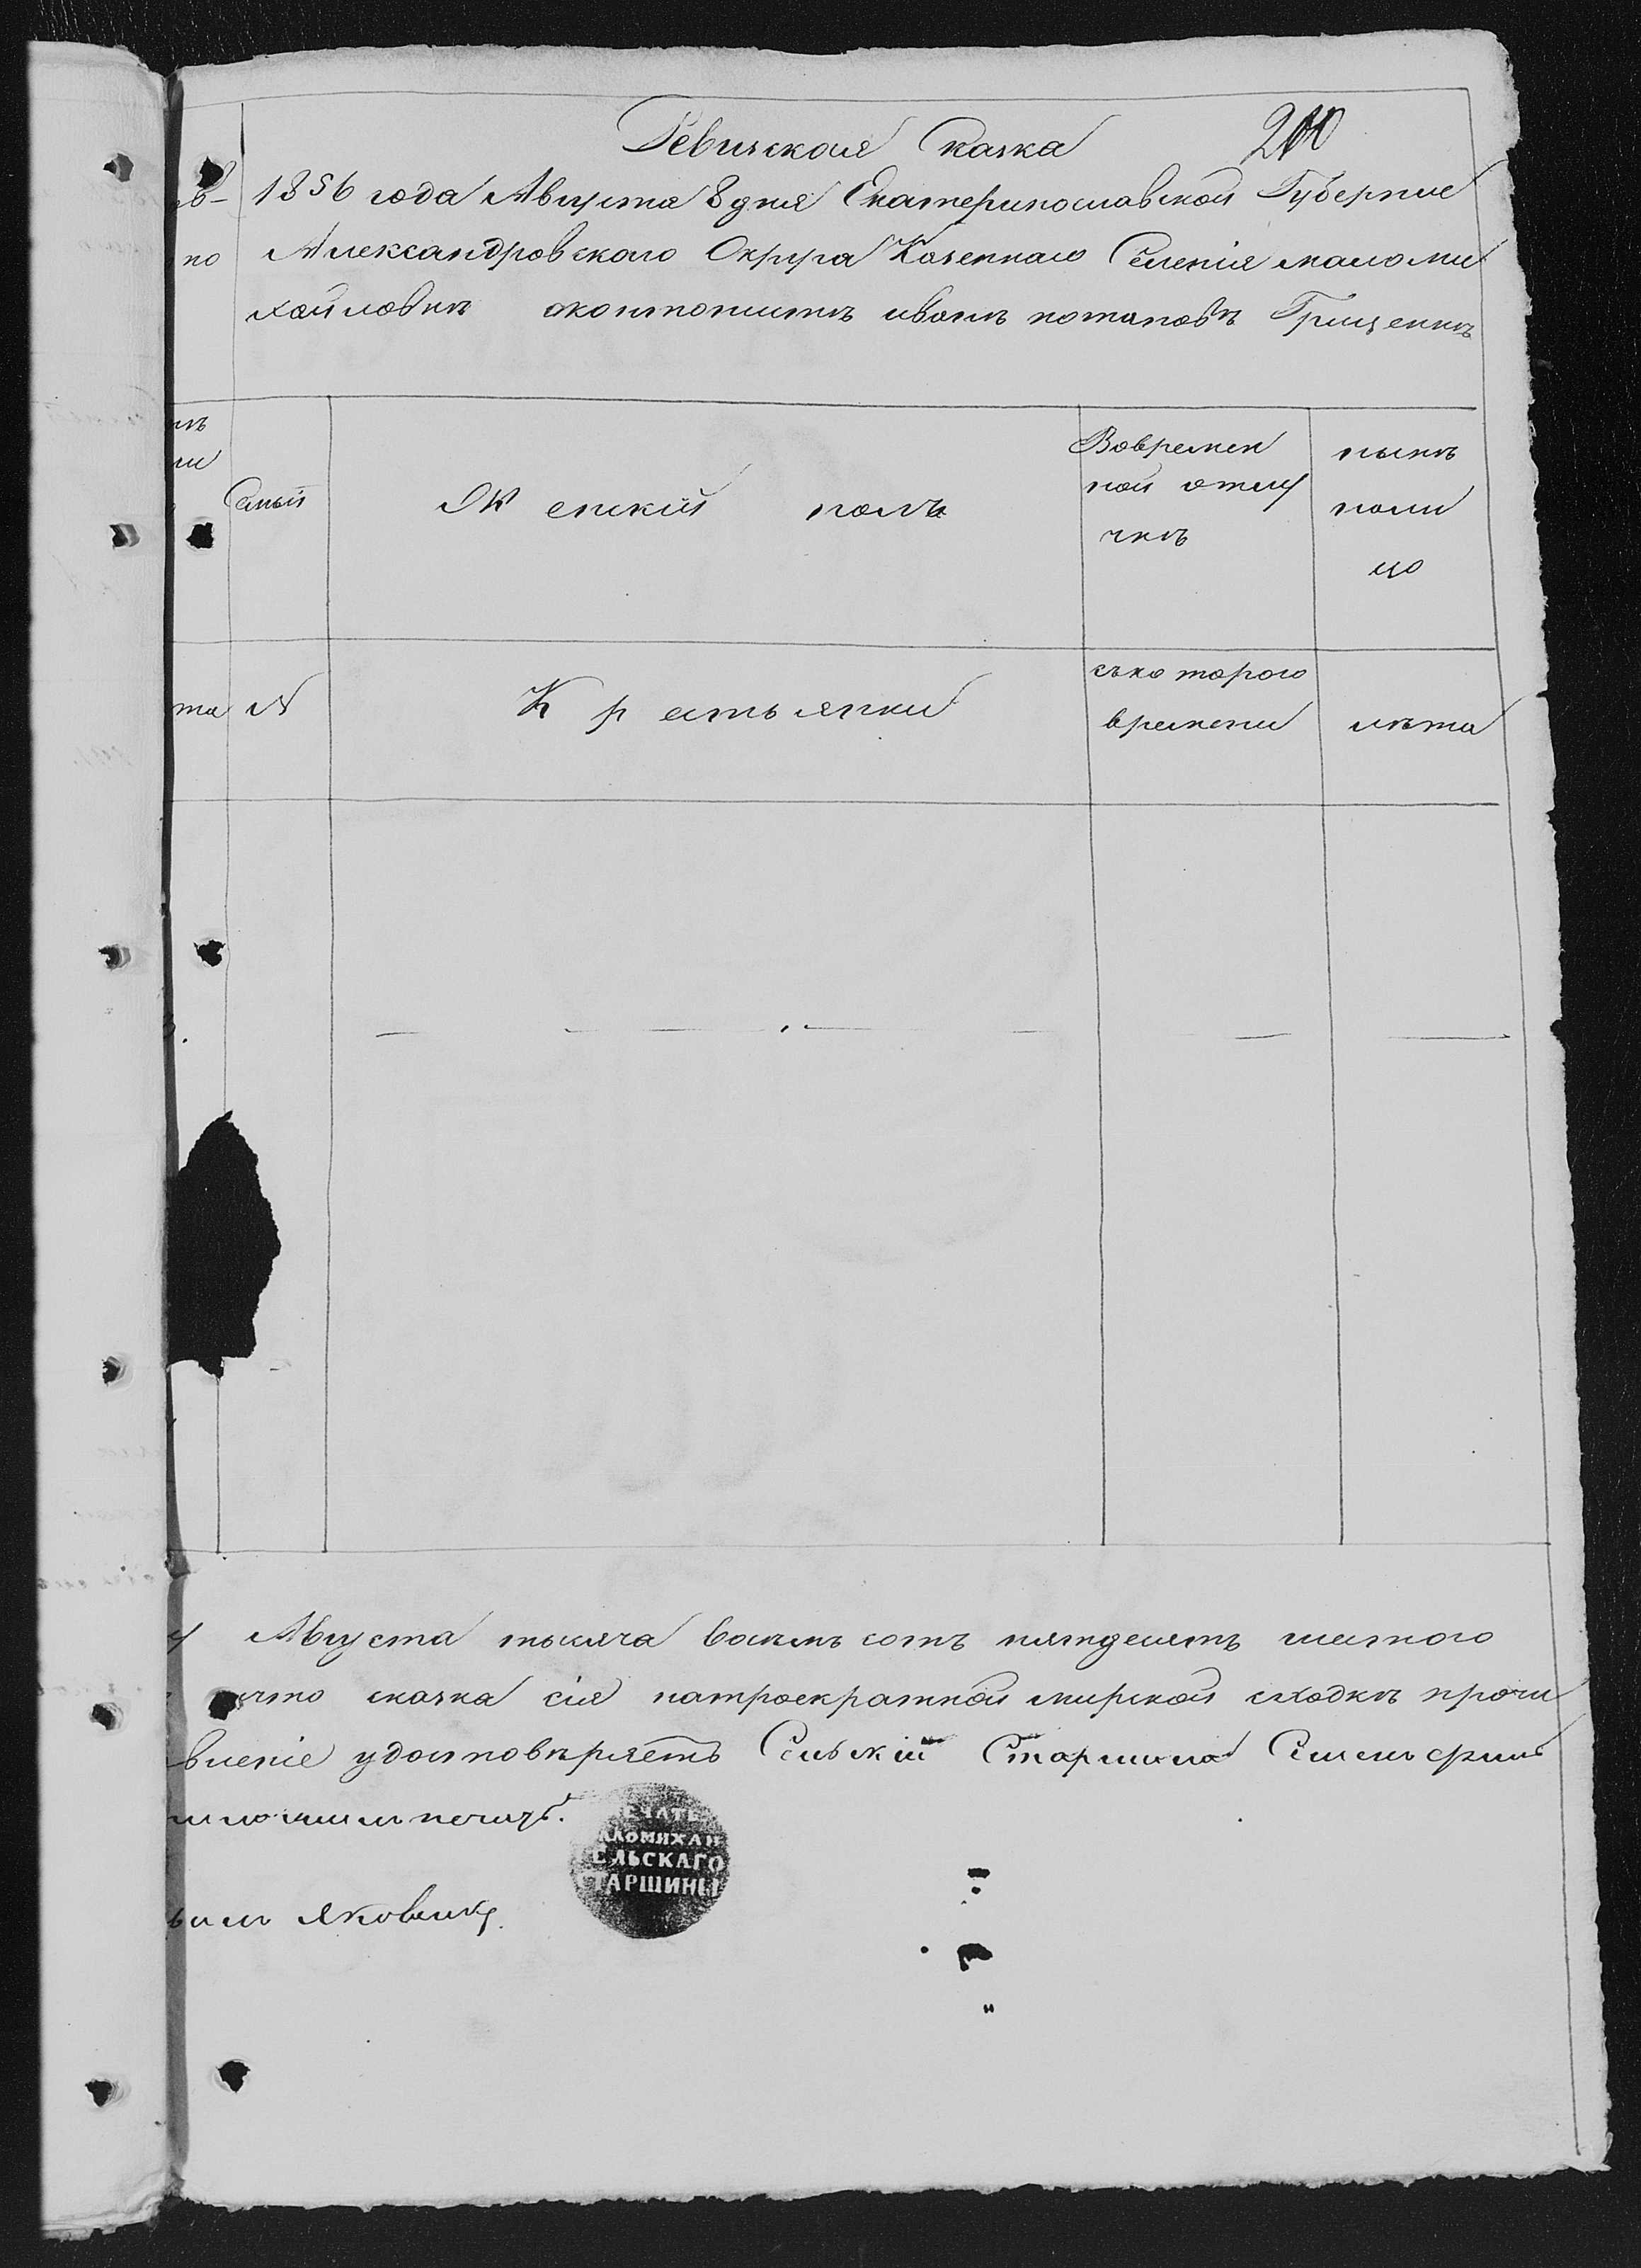 Ревизская Сказка 200
1856 года Августа 8 дня Екатеринославской Губернии
Александровского Округа Казенного Селения маломи
хайловки Иванъ потаповъ Грищенкъ
Женский полъ
Вовремен
ной отлу
чкъ
нынъ
нали
цо
та №
Крестьянки
съкоторого
времени
лъта
Августа тысяча восемъ сотъ пятдесятъ шестого
что сказка сія натроекратной мирской сходкъ прочи
вление удостовъряетъ Сельскій Старшина
печать.
ЕЧАТЬ
АЛОМИХАИ
СЕЛЬСКАГО
СТАРШИНЫ